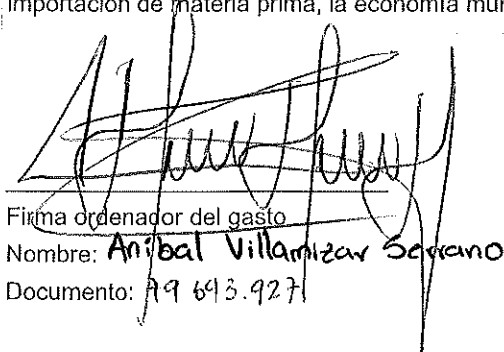 importación de materia prima, la economía mu
Firma ordenador del gasto
Nombre: Aníbal Villamizar Serrano
Documento: 79 693.927